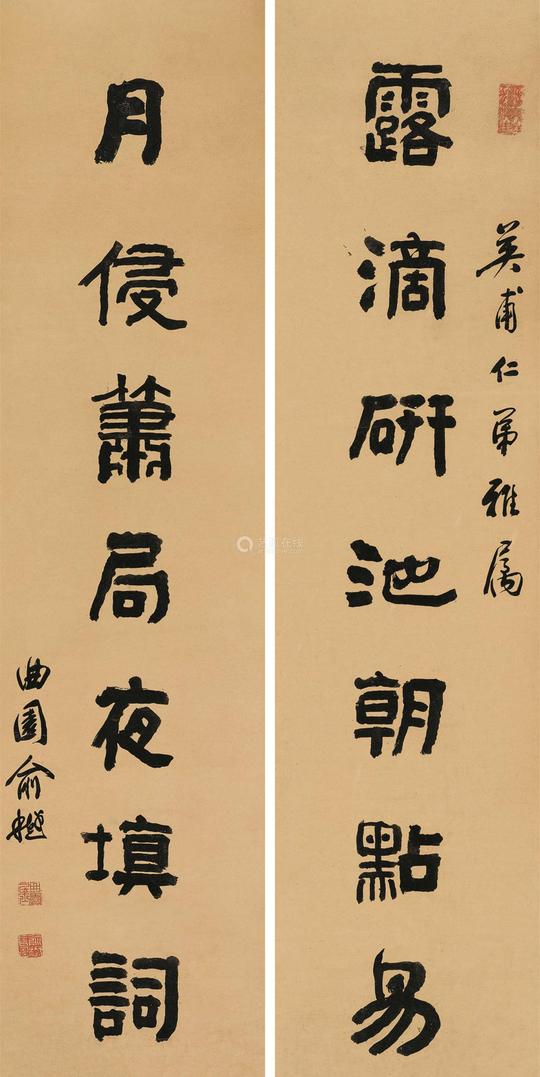 英甫仁弟雅屬
露滴研池朝點易
月侵蕭局夜填詞
曲園俞樾
艺狐在线